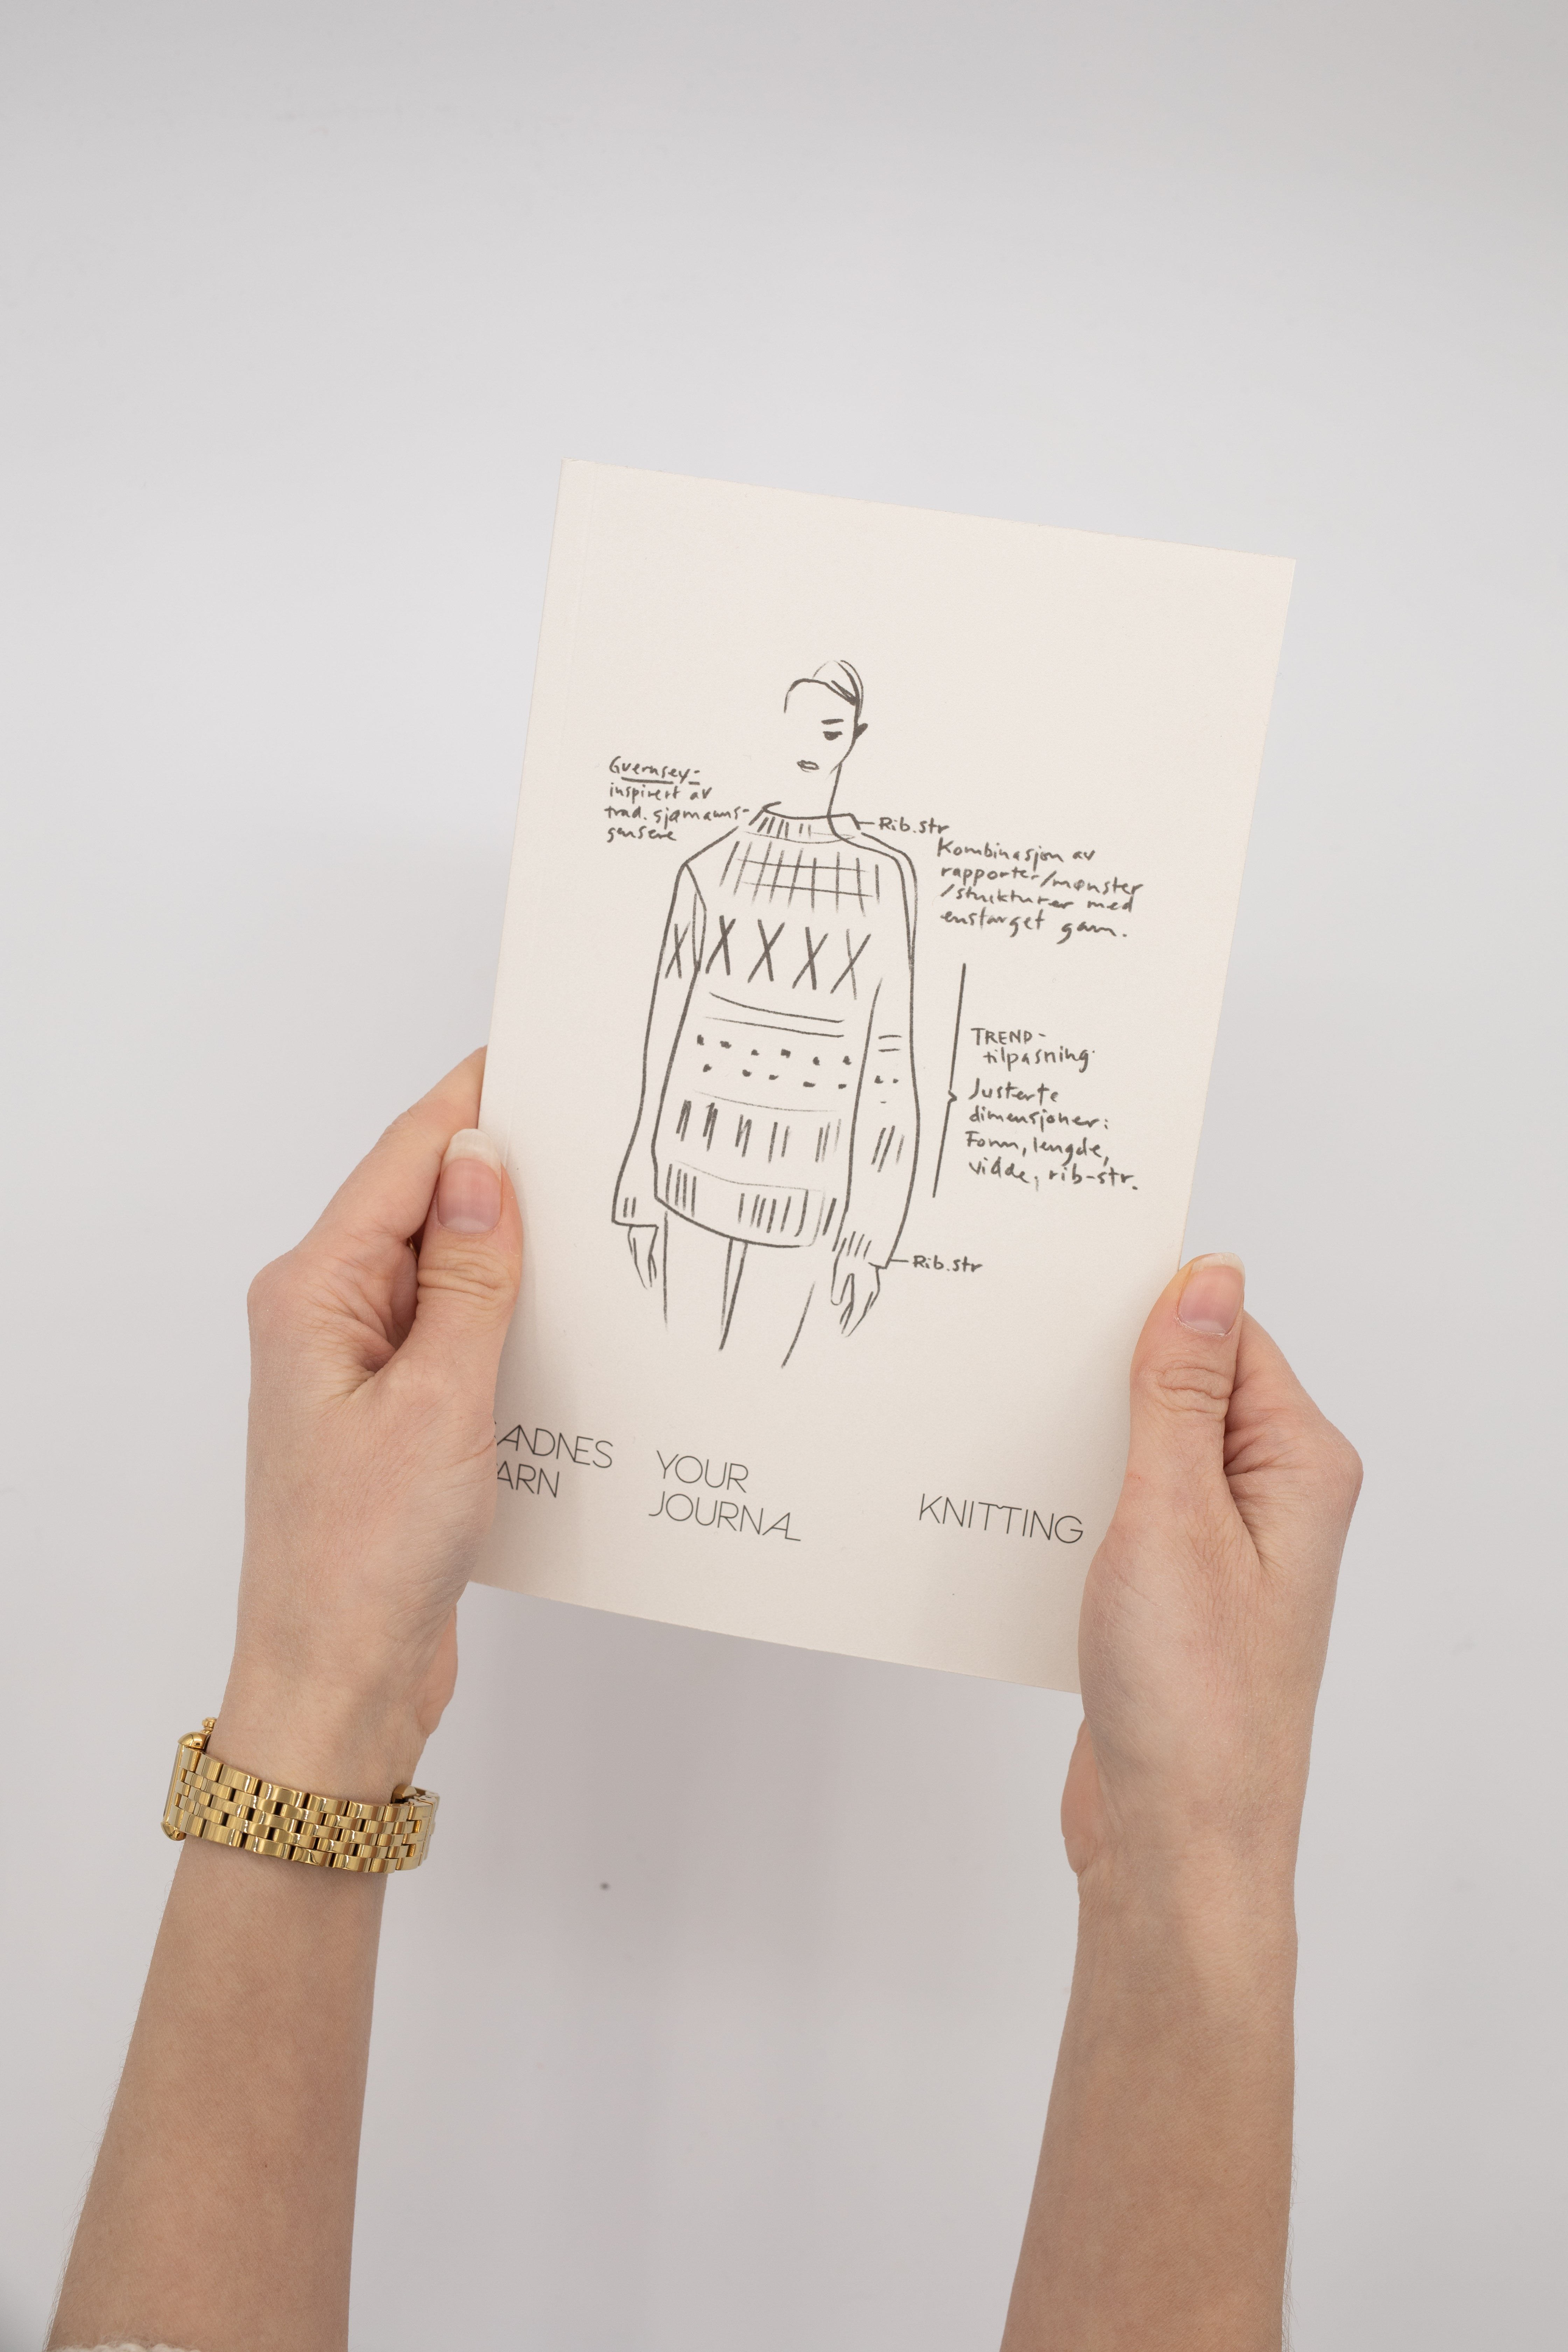 Guernsey-
inspirert av
trad. sjømanns-
gensere
Rib.str
Kombinasjon av
rapporter/mønster
/strukturer med
ensfarget garn.
TREND-
tilpasning
Justerte
dimensjoner:
Form, lengde,
vidde, rib-str.
Rib.str
ANDNES
ARN
YOUR
JOURNAL
KNITTING